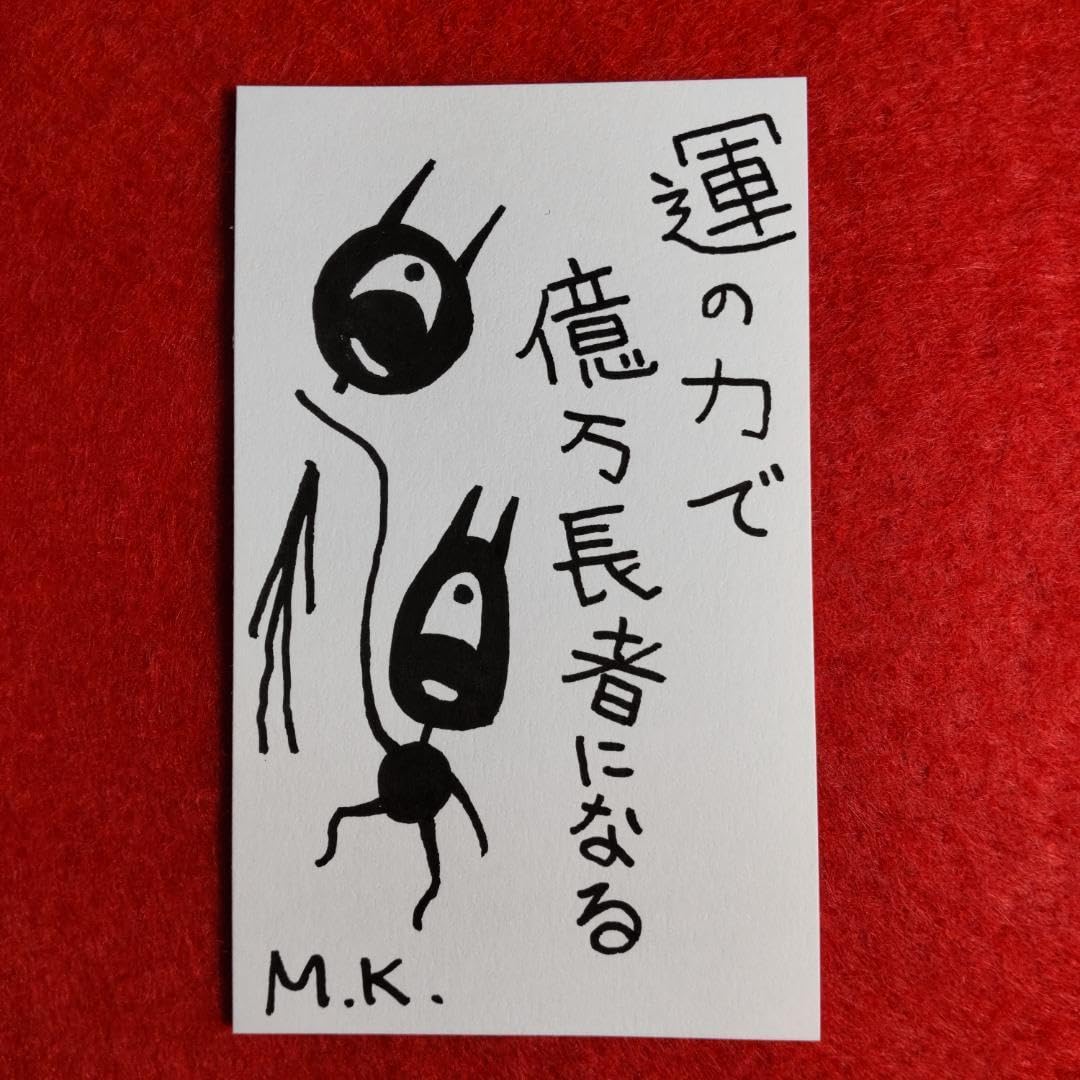 運の力で
億万長者になる
M.K.